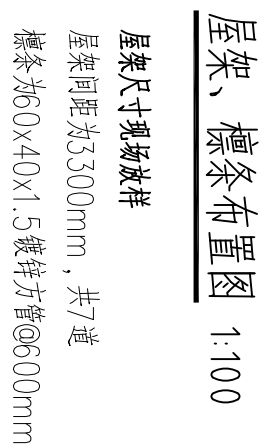 屋架、檩条布置图 1:100
屋架尺寸现场放样
屋架间距为3300mm，共7道
檩条为60x40x1.5镀锌方管@600mm